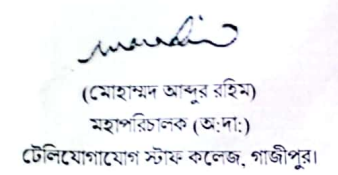 (মোহাম্মদ আব্দুর রহিম)
মহাপরিচালক (অ:দা:)
টেলিযোগাযোগ স্টাফ কলেজ, গাজীপুর।